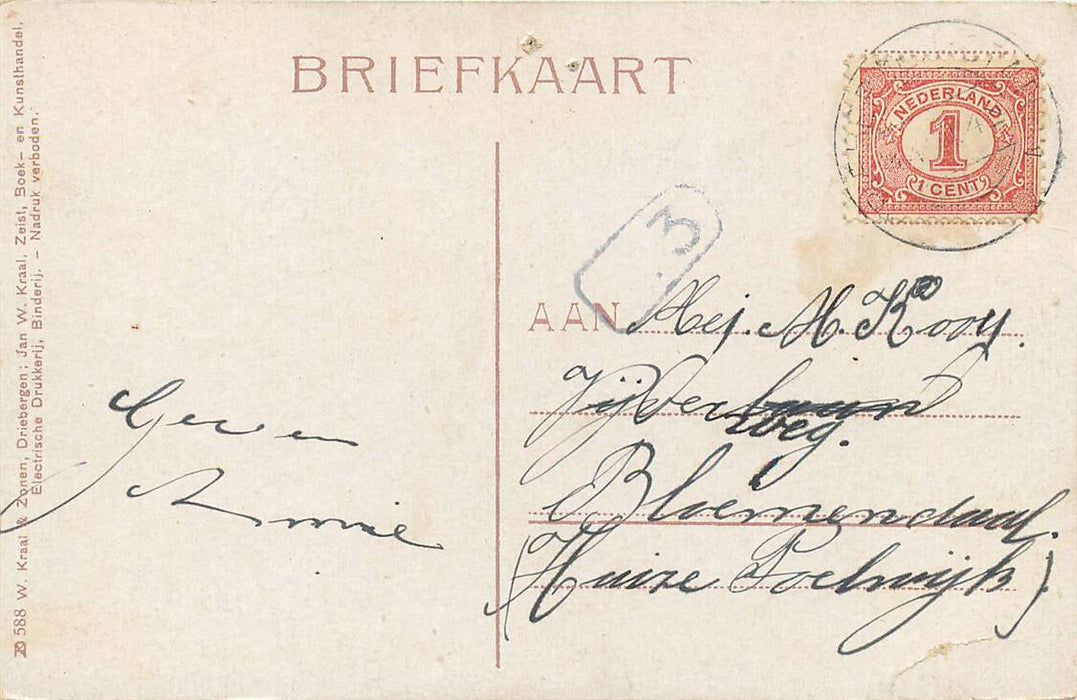 BRIEFKAART
NEDERLAND
1
1 CENT
3
AAN Mej. M. Kooy.
Vijver
weg.
Bloemendaal.
(Huize Poelwijk)
Ger en
Annie
588 W. Kraal & Zonen, Driebergen; Jan W. Kraal, Zeist, Boek- en Kunsthandel.
Electrische Drukkerij, Binderij. - Nadruk verboden.